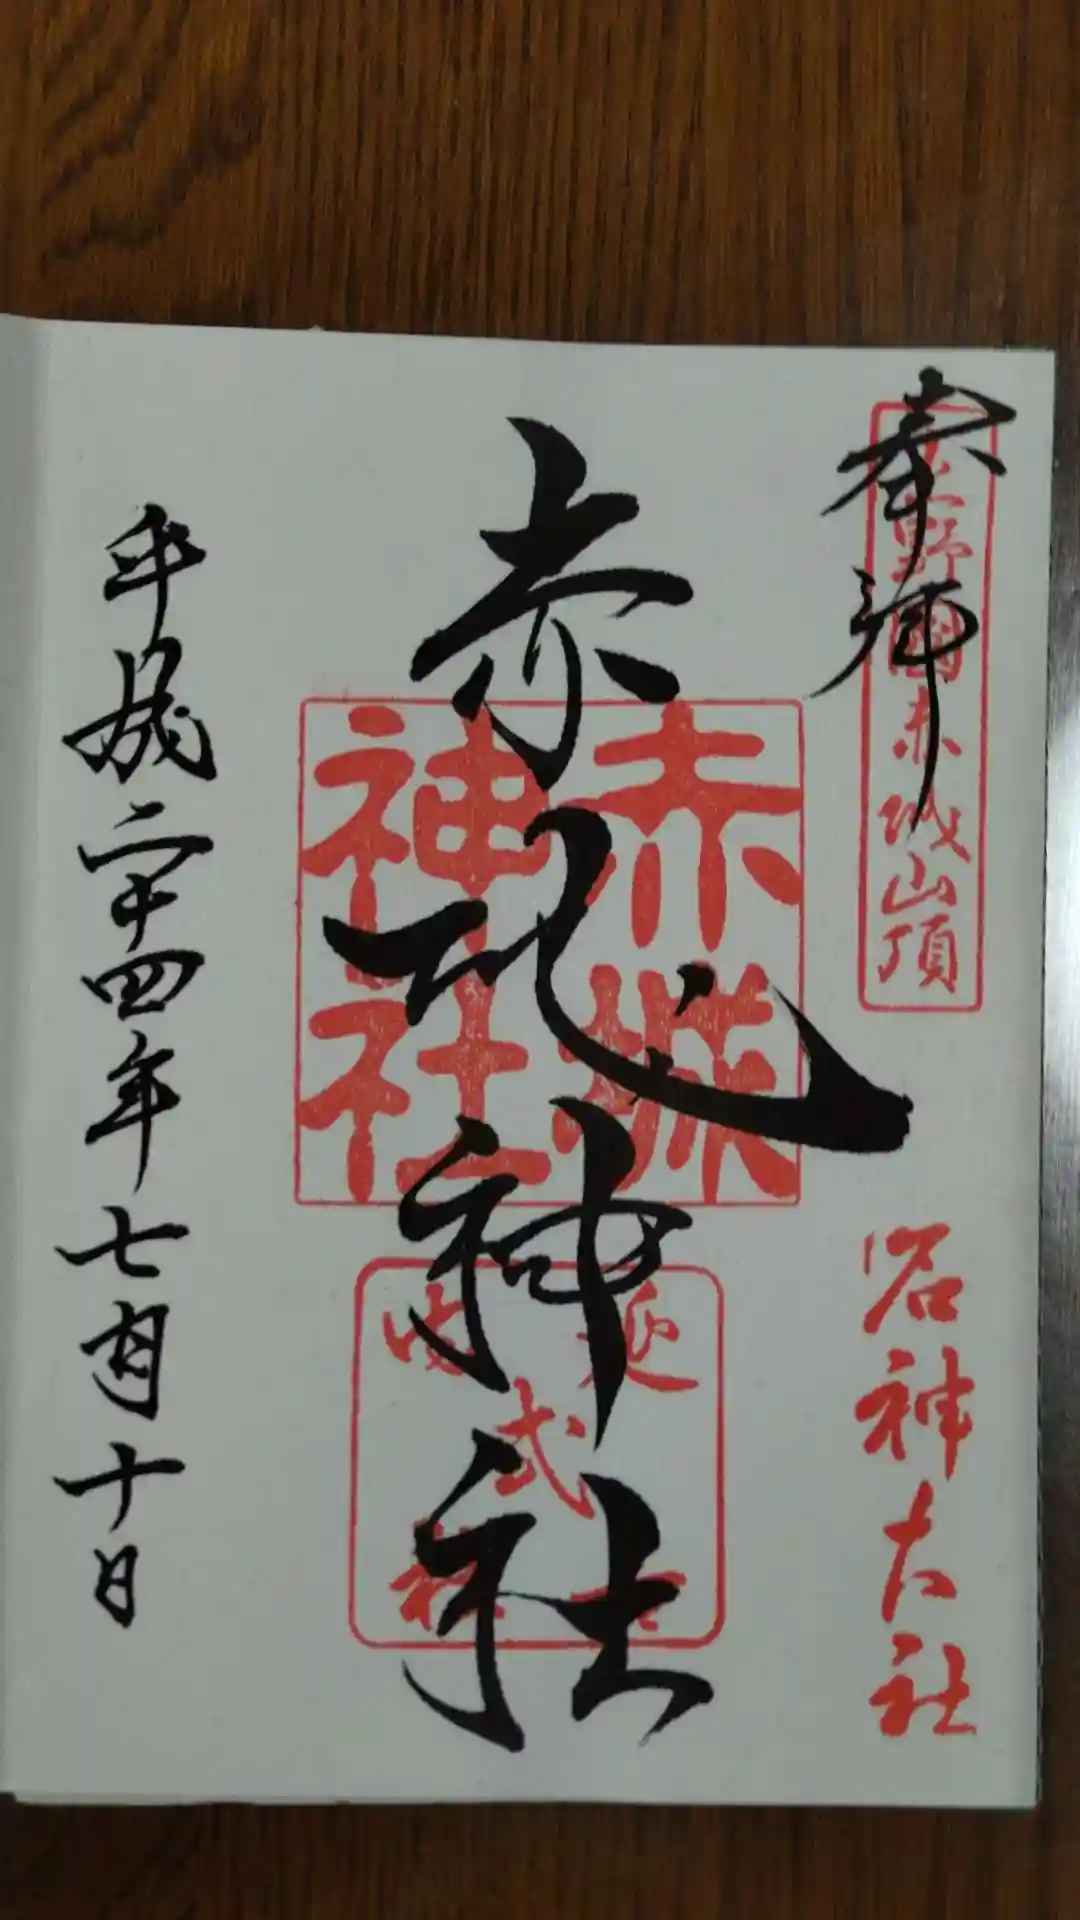 奉拝
上野國赤城山頂
名神大社
赤城神社
赤城神社
延喜式内社
平成二十四年七月十日